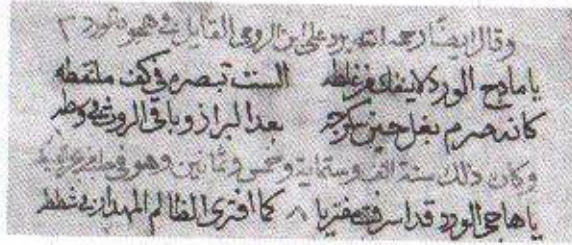 وقال ايضا رحمه الله يرد على ابن الرومي القايل في هجو الورد
يا مادح الورد لا ينفك من غلطه الست تبصره في كف ملتقطه
كانه صرم بغل حين سكرجه بعد البراز وباقي الروث في وسطه
وكان ذلك سنة الف وستماية وخمس وثمانين وهو في
يا هاجي الورد قد اسرفت مفتريا كما افترى الظالم المهدار في شططه